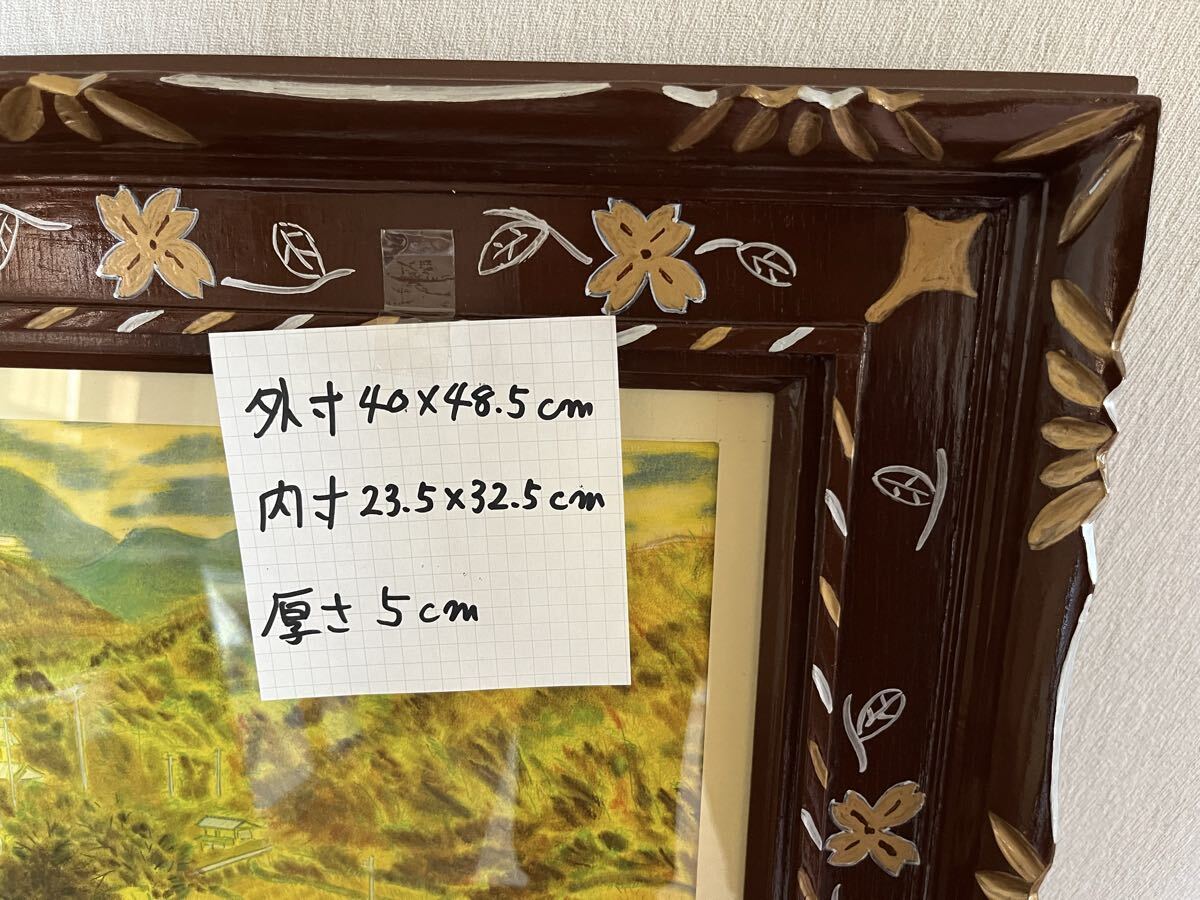 外寸 40×48.5cm
内寸 23.5×32.5cm
厚さ 5cm